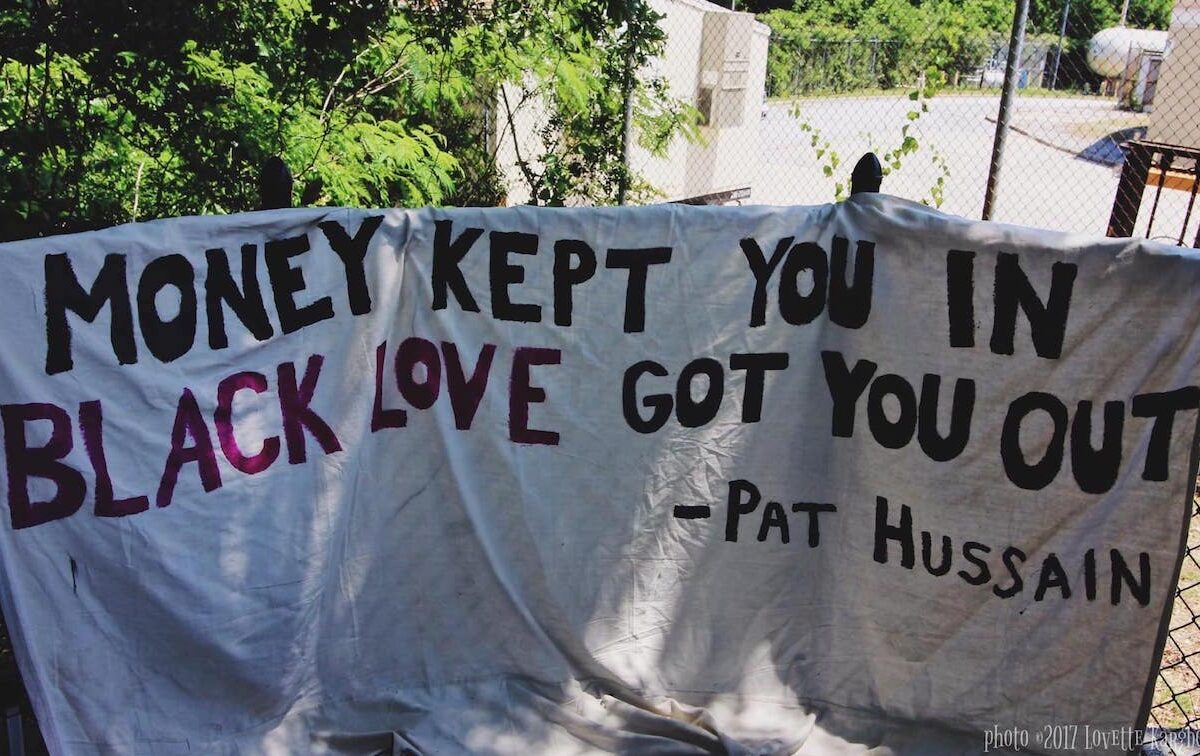 MONEY KEPT YOU IN
BLACK LOVE GOT YOU OUT
-PAT HUSSAIN
photo ©2017 Lovette